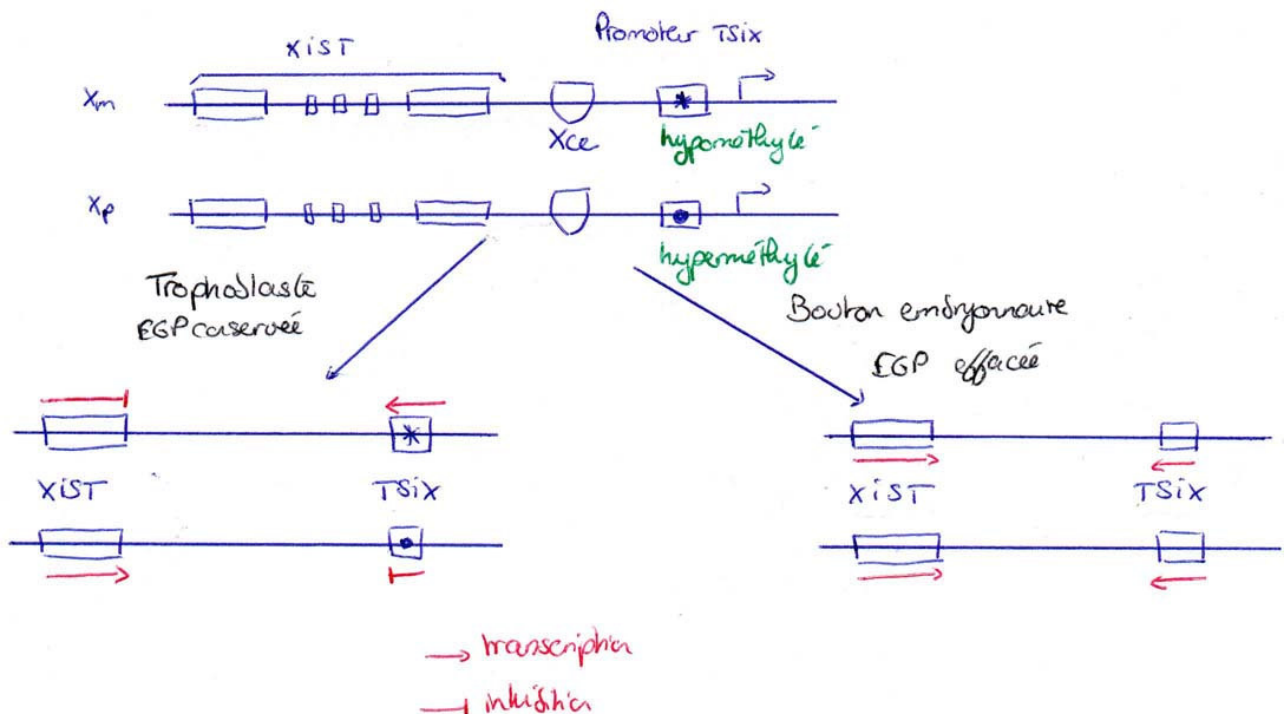 Promoteur TSix
XiST
Xm
Xce
hypométhylé
Xp
hyperméthylé
Trophoblaste
EGP conservée
Bouton embryonnaire
EGP effacée
XiST
TSiX
XiST
TSiX
transcription
inhibition